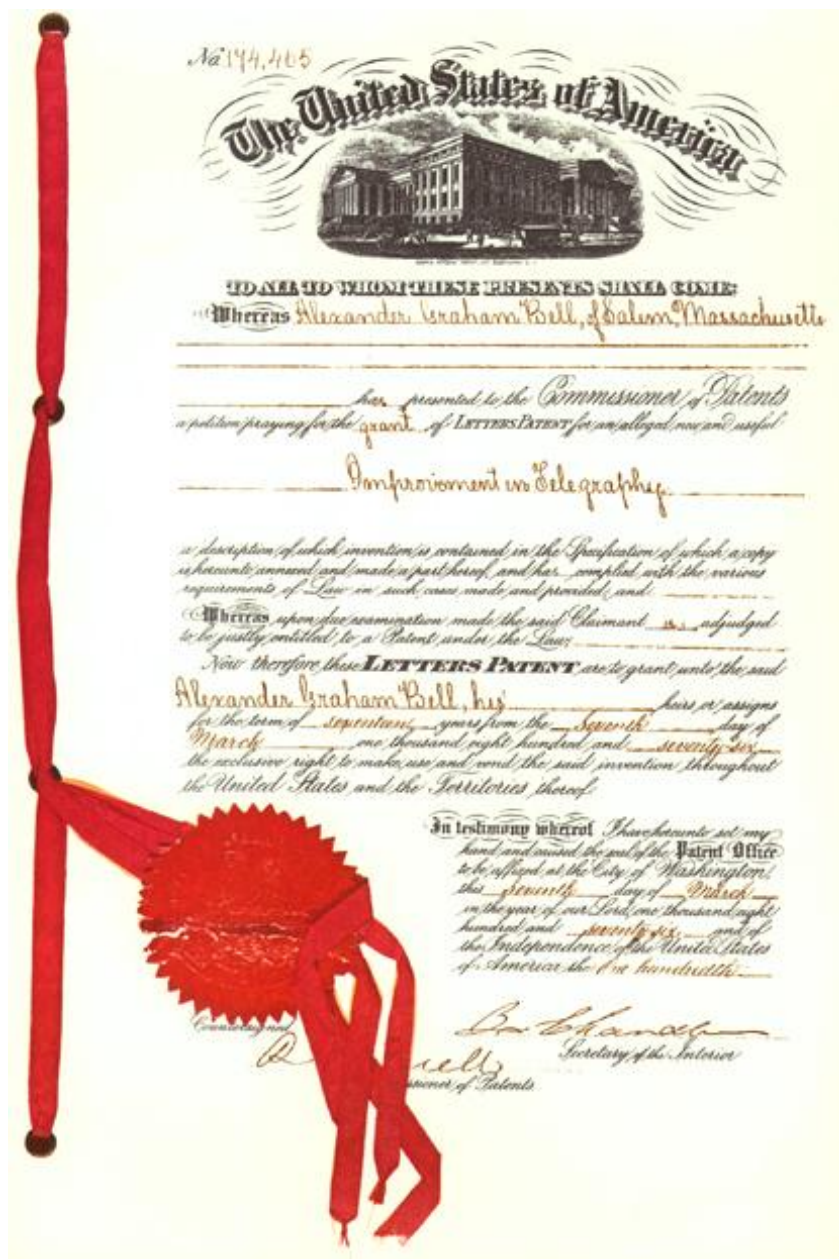 No. 174,465
The United States of America
TO ALL TO WHOM THESE PRESENTS SHALL COME:
Whereas Alexander Graham Bell, of Salem, Massachusetts
has presented to the Commissioner of Patents
a petition praying for the grant of LETTERS PATENT for an alleged new and useful
Improvement in Telegraphy.
a description of which invention is contained in the Specification of which a copy
is hereunto annexed and made a part hereof, and has complied with the various
requirements of Law in such cases made and provided, and
Whereas upon due examination made the said Claimant is adjudged
to be justly entitled to a Patent under the Law;
Now therefore these LETTERS PATENT are to grant unto the said
Alexander Graham Bell, his heirs or assigns
for the term of seventeen years from the seventh day of
March one thousand eight hundred and seventy six
the exclusive right to make, use and vend the said invention throughout
the United States and the Territories thereof.
In testimony whereof I have hereunto set my
hand and caused the seal of the Patent Office
to be affixed at the City of Washington
this seventh day of March
in the year of our Lord one thousand eight
hundred and seventy six and of
the Independence of the United States
of America the one hundredth.
Countersigned
Chandler
Secretary of the Interior
ell
ssioner of Patents